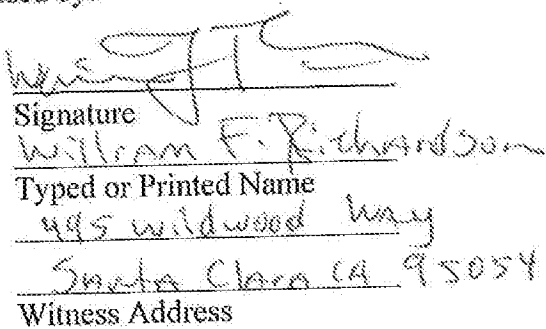 Signature
William F. Richardson
Typed or Printed Name
495 Wildwood Way
Santa Clara CA 95054
Witness Address